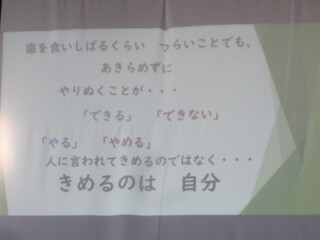 歯を食いしばるくらい　つらいことでも、
あきらめずに
やりぬくことが・・・
「できる」　「できない」
「やる」　「やめる」
人に言われてきめるのではなく・・・
きめるのは　自分